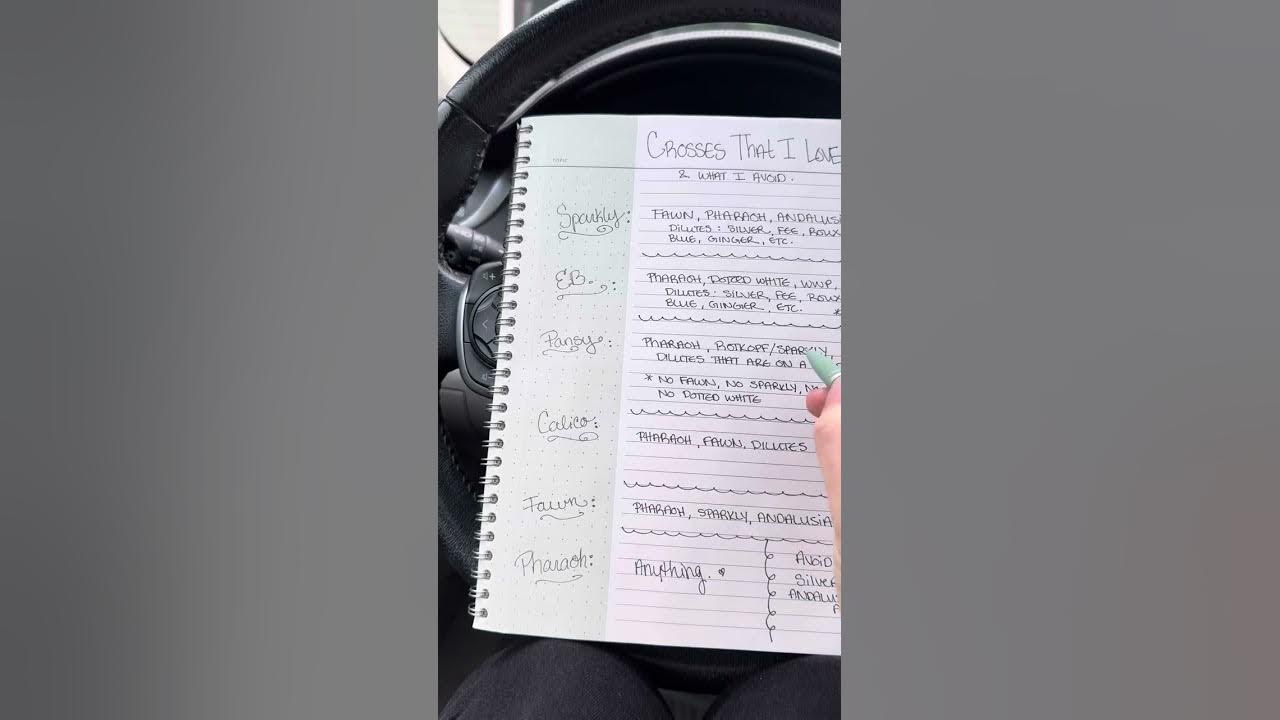 TOPIC
CROSSES THAT I LOVE
& WHAT I AVOID.
Sparkly: FAWN, PHARAOH, ANDALUSI
DILUTES: SILVER, FEE, ROUX
BLUE, GINGER, ETC.
EB.: PHARAOH, DOTTED WHITE, WWP,
DILUTES: SILVER, FEE, ROUX
BLUE, GINGER, ETC. *
Pansy: PHARAOH, ROTKOPF/SPARKLY,
DILUTES THAT ARE ON A
* NO FAWN, NO SPARKLY, NO
NO DOTTED WHITE
Calico: PHARAOH, FAWN, DILUTES
Fawn: PHARAOH, SPARKLY, ANDALUSIA
Pharaoh: Anything.
AVOID
SILVER
ANDALU